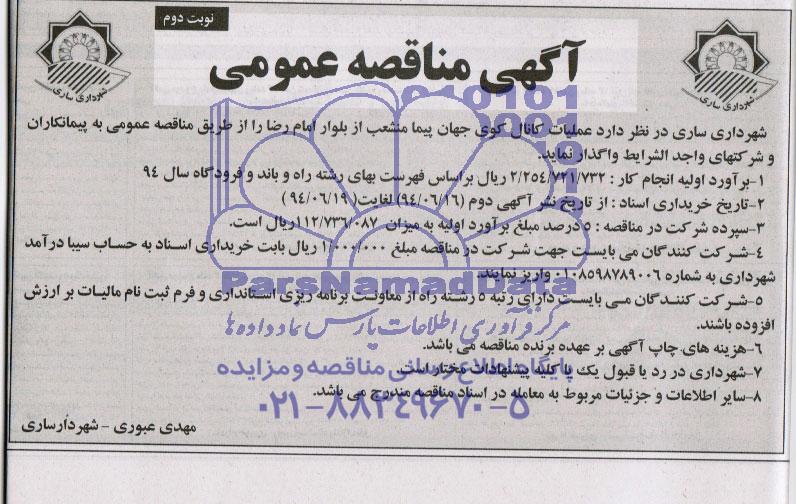 نوبت دوم
شهرداری ساری
شهرداری ساری
آگهی مناقصه عمومی
شهرداری ساری در نظر دارد عملیات کانال کوی جهان پیما منشعب از بلوار امام رضا را از طریق مناقصه عمومی به پیمانکاران
و شرکتهای واجد الشرایط واگذار نماید.
۱-برآورد اولیه انجام کار : ۲/۲۵۴/۷۲۱/۷۳۲ ریال براساس فهرست بهای رشته راه و باند و فرودگاه سال ۹۴
۲-تاریخ خریداری اسناد : از تاریخ نشر آگهی دوم (۹۴/۰۶/۱۶) لغایت( ۹۴/۰۶/۱۹ )
۳-سپرده شرکت در مناقصه : ۵ درصد مبلغ برآورد اولیه به میزان ۱۱۲/۷۳۶/۰۸۷ریال است.
۴-شرکت کنندگان می بایست جهت شرکت در مناقصه مبلغ ۱/۰۰۰/۰۰۰ ریال بابت خریداری اسناد به حساب سیبا درآمد
شهرداری به شماره ۰۱۰۸۵۹۸۷۸۹۰۰۶ واریز نمایند.
۵-شرکت کنندگان می بایست دارای رتبه ۵ رشته راه از معاونت برنامه ریزی استانداری و فرم ثبت نام مالیات بر ارزش
افزوده باشند.
۶-هزینه های چاپ آگهی بر عهده برنده مناقصه می باشد.
۷-شهرداری در رد یا قبول یک یا کلیه پیشنهادات مختار است.
۸-سایر اطلاعات و جزئیات مربوط به معامله در اسناد مناقصه مندرج می باشد.
مهدی عبوری - شهردارساری
ParsNamadData
مرکز فرآوری اطلاعات پارس نماد داده ها
پایگاه اطلاع رسانی مناقصه و مزایده
۰۲۱-۸۸۳۴۹۶۷۰-۵